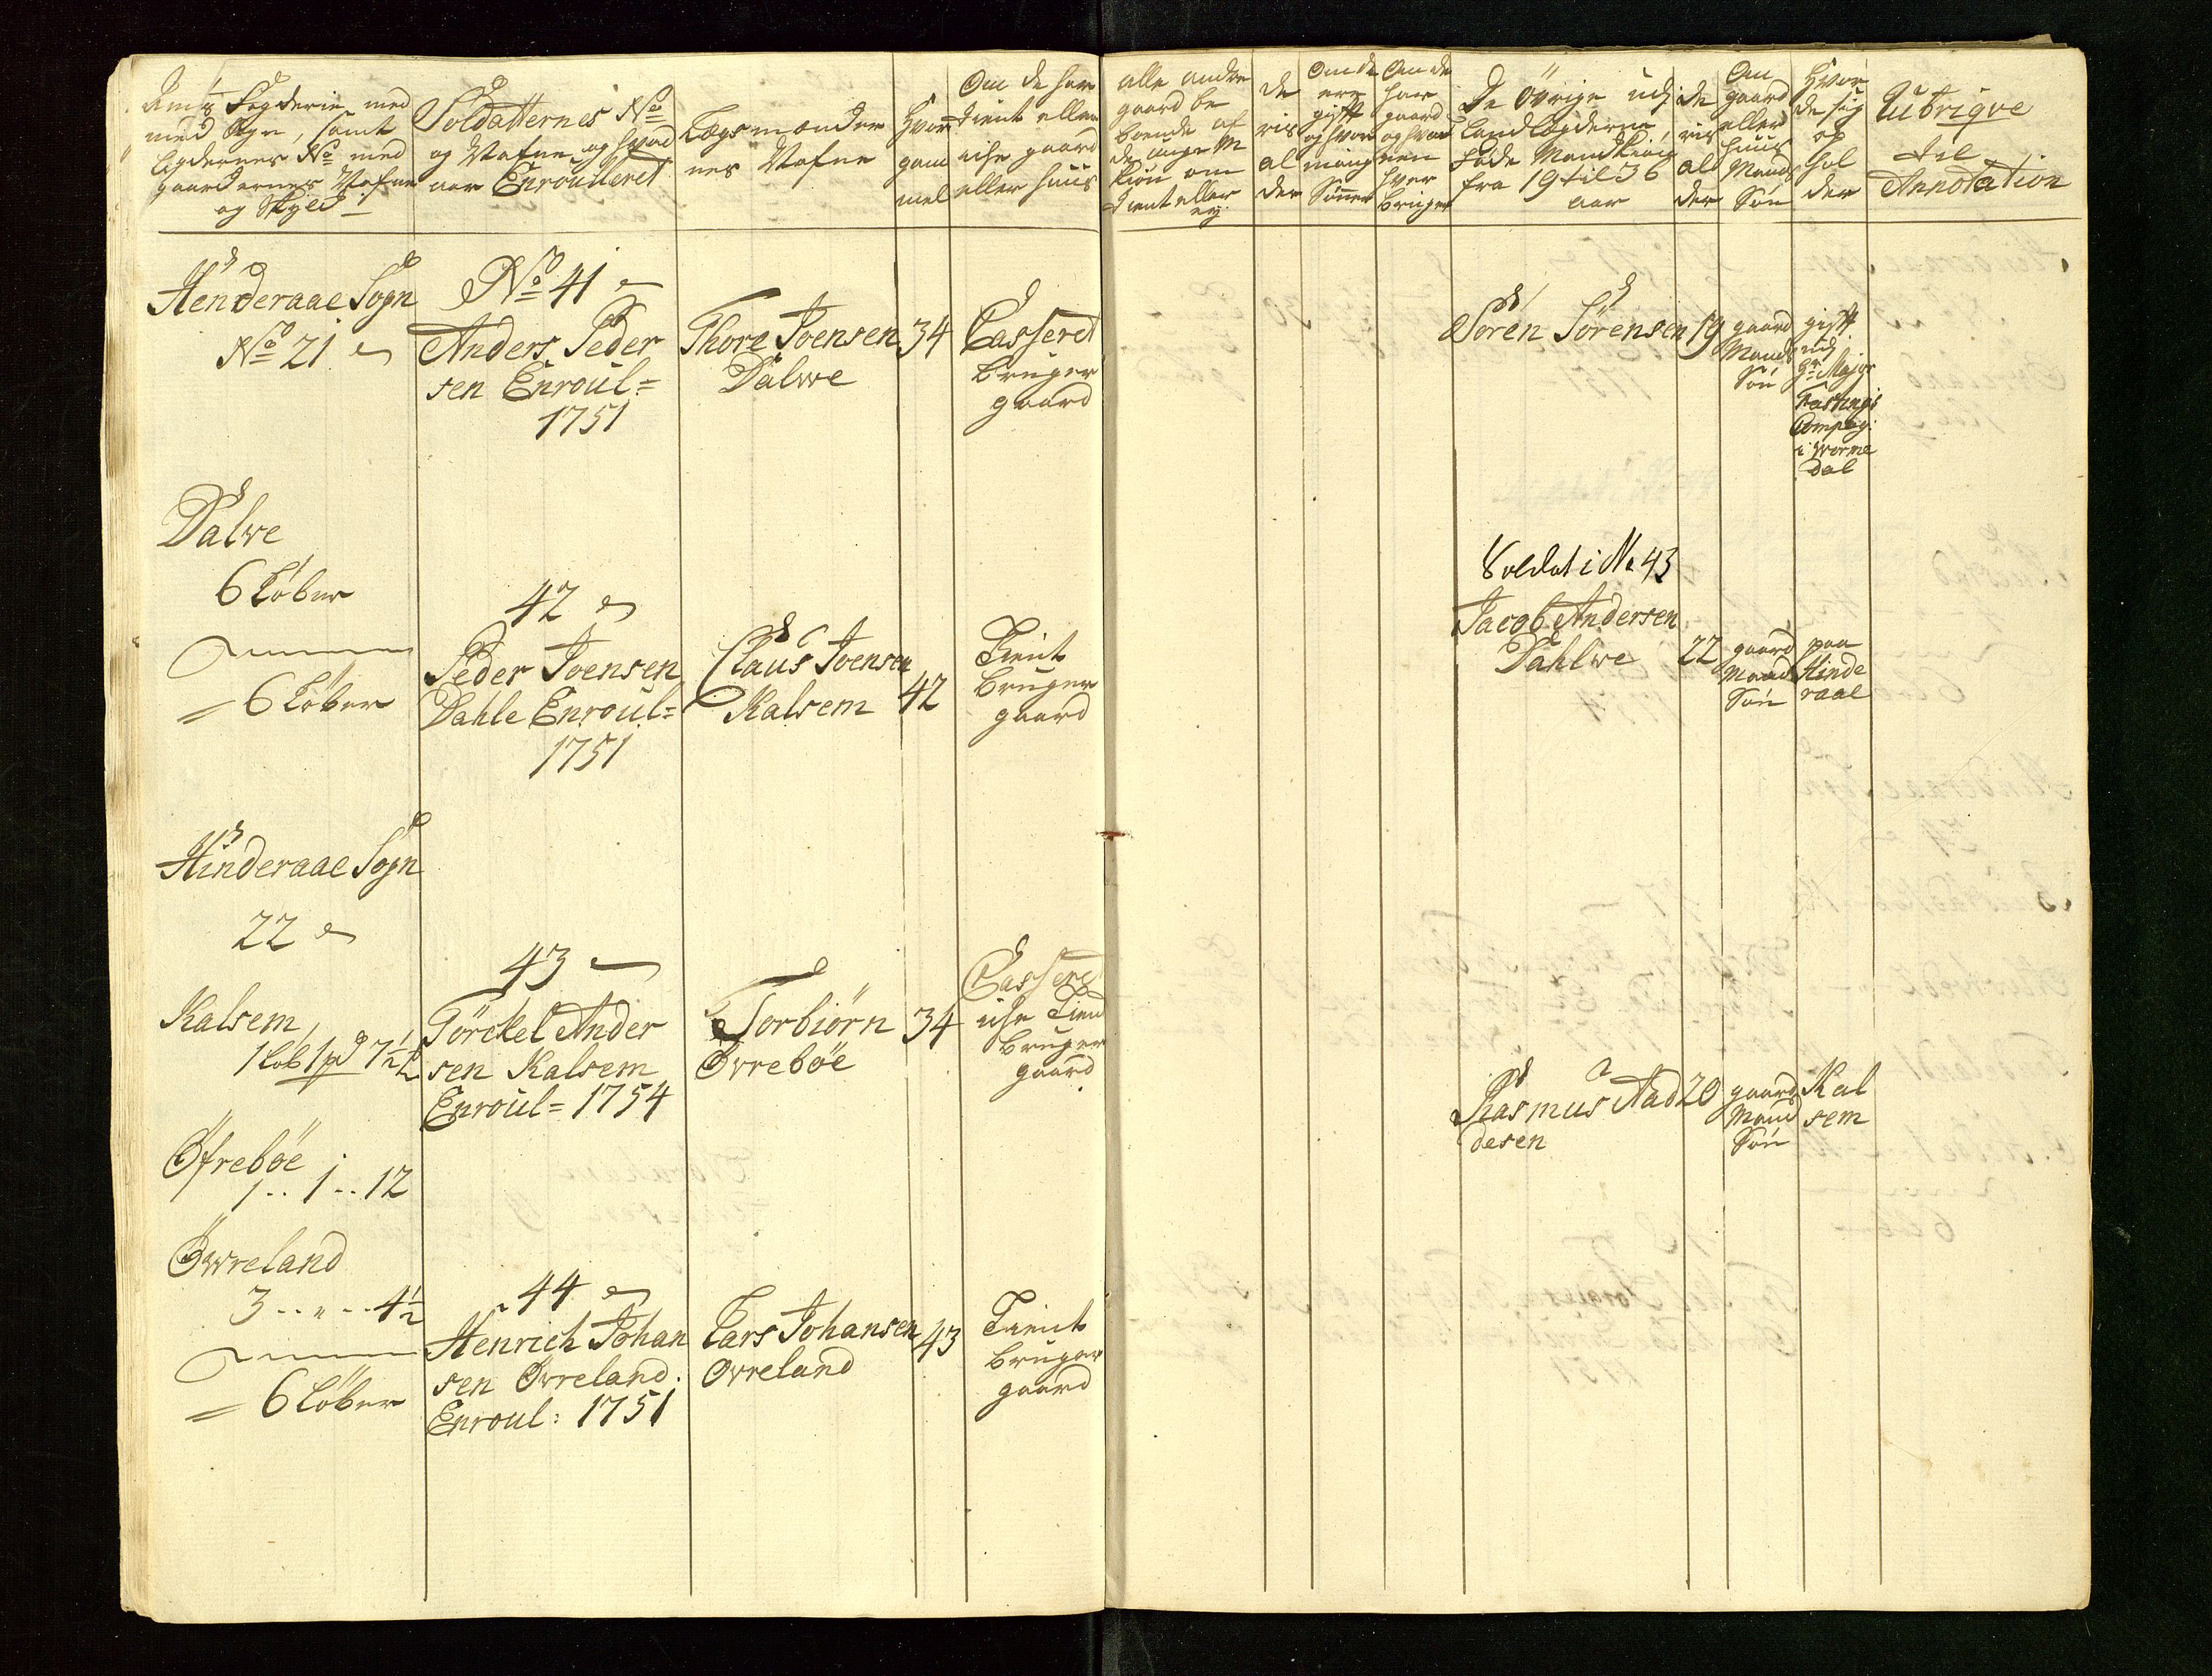 Fogderie med
med Sogn, samt
Legdernes No med
gaardernes Nafne
og Skyld
Soldatternes No
og Nafne og hvad
aar Enroulleret
Lægsmænder
nes Nafne
Hvor
gam
mel
Om de har
tient eller
iche gaard
eller huus
alle andre
gaard be
boende af
de unge M
kiøn om
tient eller
ey.
de
ris
al
der
Om de
ere
gift
og hvor
mange
Sønner
Om de
har
gaard
og hvad
hver
bruger
De Övrige udj
Land Lægderne
føde Mandkiøn
fra 19 til 36
aar
de
ris
al
der
Om
gaard
eller
huus
Mands
Søn
Hvor
de sig
op
hol
der
Rubriqve
til
Annotation
Henderaae Sogn
No 21
No 41
Anders Peder
sen Enroul=
1751
Thore Joensen
Dalwe
34
Casseret
bruger
gaard
Sören Sörensen
19
gaard
Mands
Søn
gift
udj
Hr Major
Fastings
Compag:
i Worme
dal
Dalve
6 Løber
= 6 Løber
42
Peder Joensen
Dahle Enroul=
1751
Claus Joensen
Kalsem
42
Tient
bruger
gaard
Soldat i No 43
Jacob Andersen
Dahlwe
22
gaard
Mands
Søn
paa
Hinde
raae
Hinderaae Sogn
22
Kalsem,
1 Løb 1 pd 7½
43
Törckel Ander
sen Kalsem
Enroul= 1754
Torbiörn
Övreböe
34
Casseret
iche Tient
bruger
gaard
Rasmus Aad
desen
20
gaard
Mands
Søn
Kal
sem
Öfreböe
1 .. 1 .. 12
Öwreland
3 .. " .. 4½
= 6 Løber
44
Henrich Johan
sen Övreland.
Enroul: 1751
Lars Johansen
Ovreland
43
Tient
bruger
gaard